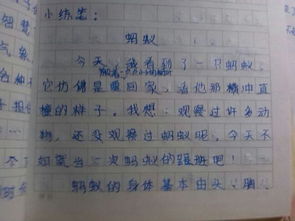 小练笔：
蚂蚁
今天，我看到了一只蚂蚁，
它仿佛是要回家，看他那横冲直
撞的样子，我想：观察过许多动
物，还没观察过蚂蚁呢，今天不
如来当一次蚂蚁的跟班吧！
蚂蚁的身体基本由头、胸、